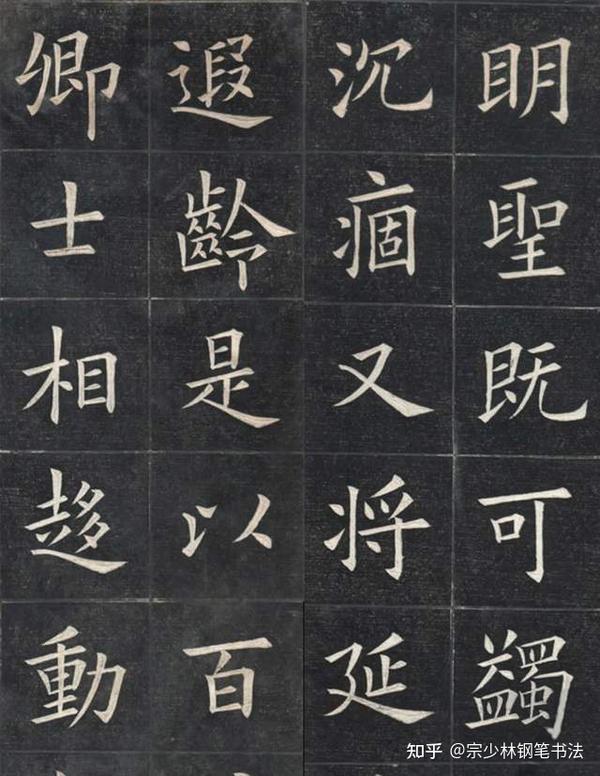 眀聖既可蠲
沉痼又将延
遐齡是以百
卿士相趍動
知乎 @宗少林钢笔书法